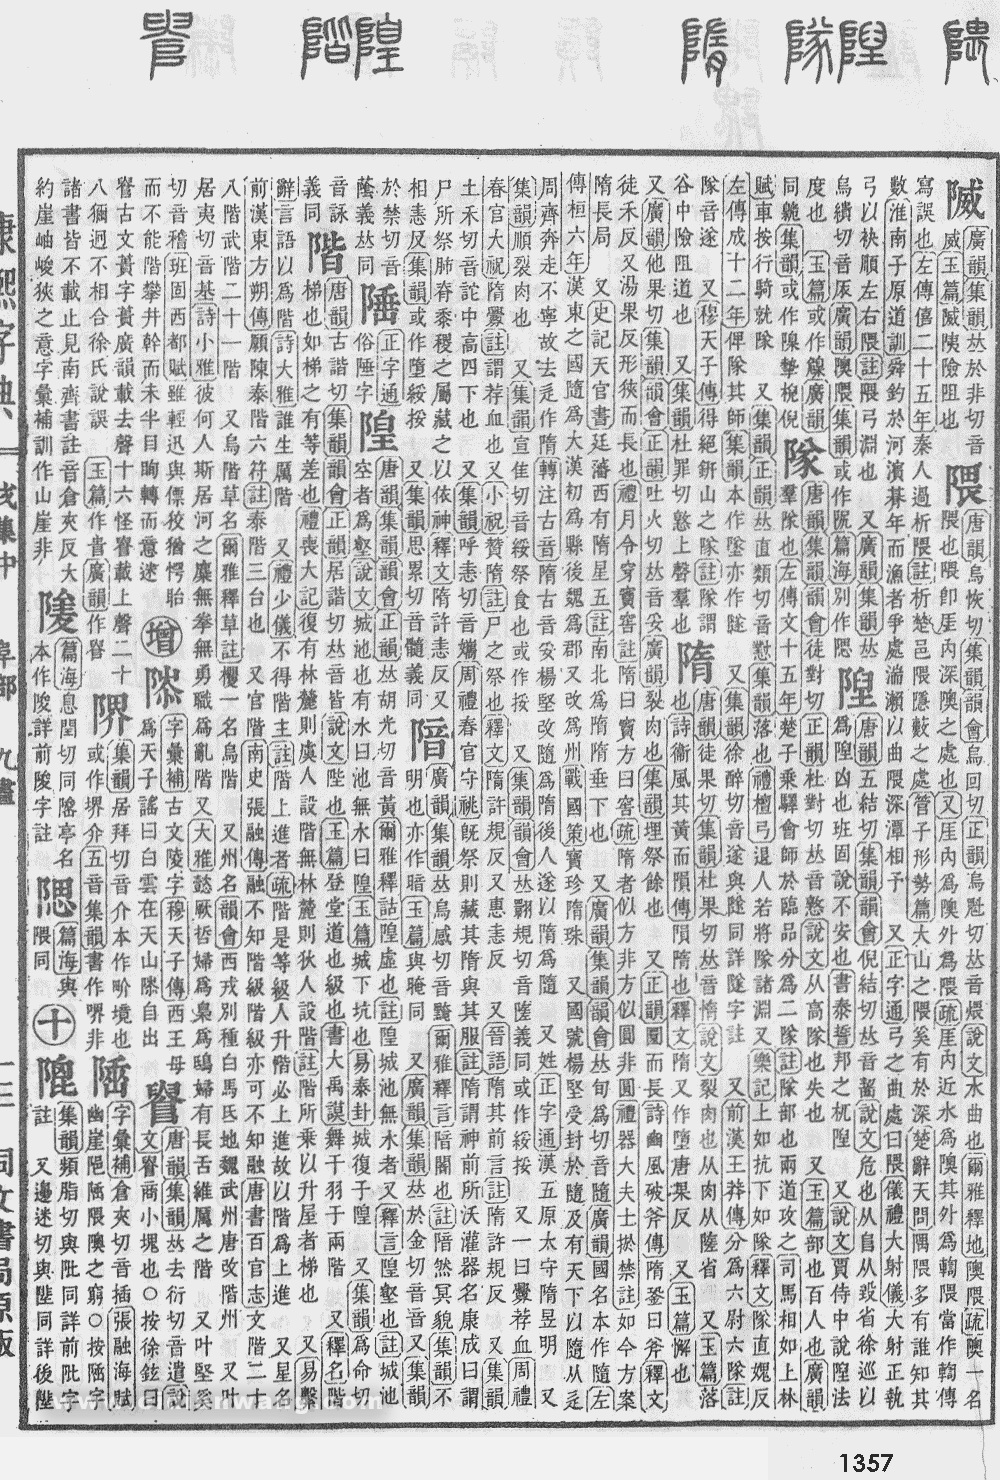 隇
廣韻集韻𠀤於非切音
威玉篇隇陦險阻也
隈
唐韻烏恢切集韻韻會烏回切正韻烏魁切𠀤音煨說文水曲也爾雅釋地隩隈疏隩一名
隈也隈卽厓內深隩之處也又厓內爲隩外爲隈疏厓內近水爲隩其外爲鞫隈當作鞫傳
寫誤也左傳僖二十五年秦人過析隈註析楚邑隈隱蔽之處管子形勢篇大山之隈奚有於深楚辭天問隅隈多有誰知其
數淮南子原道訓舜釣於河濱朞年而漁者爭處湍瀨以曲隈深潭相予 又正字通弓之曲處曰隈儀禮大射儀大射正執
弓以袂順左右隈註隈弓淵也 又廣韻集韻𠀤
烏繢切音廣韻隩隈集韻或作篇海別作
隉
唐韻五結切集韻韻會倪結切𠀤音齧說文危也从𨸏自从毀省徐巡以
爲隉凶也班固說不安也書泰誓邦之杌隉 又說文賈侍中說隉法
度也 玉篇或作廣韻
同臲集韻或作隉槷梲倪
隊
唐韻集韻韻會徒對切正韻杜對切𠀤音憝說文从高隊也失也 又玉篇部也百人也廣韻
羣隊也左傳文十五年楚子乘驛會師於臨品分爲二隊註隊部也兩道攻之司馬相如上林
賦車按行騎就隊 又集韻正韻𠀤直類切音懟集韻落也禮檀弓退人若將隊諸淵又樂記上如抗下如隊釋文隊直媿反
左傳成十二年俾隊其師集韻本作墜亦作隧 又集韻徐醉切音遂與隧同詳隧字註 又前漢王莽傳分爲六尉六隊註
隊音遂 又穆天子傳得絕鈃山之隊註隊謂
谷中險阻道也 又集韻杜罪切憝上聲羣也
隋
唐韻徒果切集韻杜果切𠀤音惰說文裂肉也从肉从隓省 又玉篇落
也詩衞風其黃而隕傳隕隋也釋文隋又作墮唐果反 又玉篇懈也
又廣韻他果切集韻韻會正韻吐火切𠀤音妥廣韻裂肉也集韻埋祭餘也 又正韻圜而長詩豳風破斧傳隋銎曰斧釋文
徒禾反又湯果反形狹而長也禮月令穿竇窖註隋曰竇方曰窖疏隋者似方非方似圓非圓禮器大夫士棜禁註如今方案
隋長局 又史記天官書廷藩西有隋星五註南北爲隋隋垂下也 又廣韻集韻韻會𠀤旬爲切音隨廣韻國名本作隨左
傳桓六年漢東之國隨爲大漢初爲縣後魏爲郡又改爲州戰國策寶珍隋珠 又國號楊堅受封於隨及有天下以隨从辵
周齊奔走不寧故去辵作隋轉注古音隋古音妥楊堅改隨爲隋後人遂以隋爲隨 又姓正字通漢五原太守隋昱明 又
集韻順裂肉也 又集韻宣佳切音綏祭食也或作挼 又集韻韻會𠀤翾規切音隓義同或作綏挼 又一曰釁荐血周禮
春官大祝隋釁註謂荐血也 又小祝贊隋註尸之祭也釋文隋許規反又惠恚反 又晉語隋其前言註隋許規反 又集韻
土禾切音詑中高四下也 又集韻呼恚切音孈周禮春官守祧旣祭則藏其隋與其服註隋謂神前所沃灌器名康成曰謂
尸所祭肺脊黍稷之屬藏之以依神釋文隋許恚反又
相恚反集韻或作墮綏挼 又集韻思累切音髓義同
㗼
廣韻集韻𠀤烏感切音黤爾雅釋言㗼闇也註㗼然冥貌集韻不
明也亦作暗玉篇與晻同 又廣韻集韻𠀤於金切音音又集韻
於禁切音
蔭義𠀤同
正字通
俗陲字
隍
唐韻集韻韻會正韻𠀤胡光切音黃爾雅釋詁隍虛也註隍城池無水者 又釋言隍壑也註城池
空者爲壑說文城池也有水曰池無水曰隍玉篇城下坑也易泰卦城復于隍 又集韻爲命切
音詠
義同
階
唐韻古諧切集韻韻會正韻居諧切𠀤音皆說文陛也玉篇登堂道也級也書大禹謨舞干羽于兩階 又釋名階
梯也如梯之有等差也禮喪大記復有林麓則虞人設階無林麓則狄人設階註階所乘以升屋者梯也 又易繫
辭言語以爲階詩大雅誰生厲階 又禮少儀不得階主註階上進者疏階是等級人升階必上進故以階爲上進 又星名
前漢東方朔傳願陳泰階六符註泰階三台也 又官階南史張融傳融不知階級階級亦可不知融唐書百官志文階二十
八階武階二十一階 又烏階草名爾雅釋草註欔一名烏階 又州名韻會西戎別種白馬氐地魏武州唐改階州 又叶
居夷切音基詩小雅彼何人斯居河之麋無拳無勇職爲亂階 又大雅懿厥哲婦爲梟爲鴟婦有長舌維厲之階 又叶堅奚
切音稽班固西都賦雖輕迅與僄狡猶愕眙
而不能階攀井幹而未半目眴轉而意迷
增
字彙補古文陵字穆天子傳西王母
爲天子謠曰白雲在天山自出
𨺅
唐韻集韻𠀤去衍切音遣說
文𨺅商小塊也〇按徐鉉曰
𨺅古文蕢字蕢廣韻載去聲十六怪𨺅載上聲二十
八獮迥不相合徐氏說誤 玉篇作𠳋廣韻作𨺅
集韻居拜切音介本作畍境也
或作堺介五音集韻書作堺非
字彙補倉夾切音插張融海賦
幽崖隈隩之窮〇按字
諸書皆不載止見南齊書註音倉夾反大
約崖岫峻狹之意字彙補訓作山崖非
篇海息閏切同陖亭名
本作陵詳前陵字註
隠
篇海與
隈同
十
集韻頻脂切與阰同詳前阰字
註 又邊迷切與陛同詳後陛
康熙字典
戌集中
阜部
九畫
一三
同文書局原版
1357